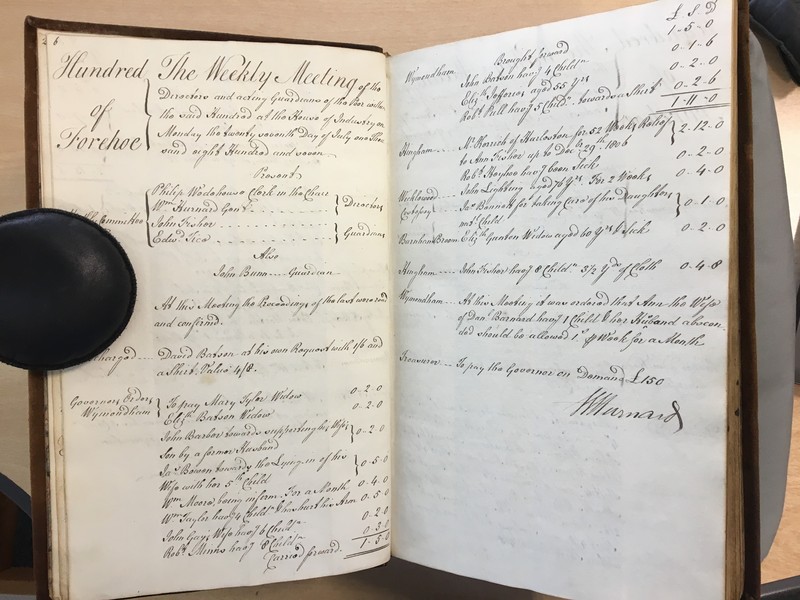 Hundred of Forehoe
The Weekly Meeting of the
Directors and acting Guardians of the Poor within
the said Hundred at the House of Industry on
Monday the twenty seventh Day of July one Thou
sand eight Hundred and seven
Present
Philip Wodehouse Clerk in the Chair
Wm. Hurnard Gent. Directors
Committee John Fisher
Edwd. Guardians
Also
John Bunn Guardian
At this Meeting the Proceedings of the last were read
and confirmed.
David Batson at his own Request with 1/6 and
a Shirt Value 4/8.
Governors Orders To pay Mary Tyler Widow 0-2-0
Wymondham Elizth. Batson Widow 0-2-0
John Barber towards supporting his Wifes
Son by a former Husband 0-2-0
Jas. Bowen towards the Lying in of his
Wife with her 5th Child 0-5-0
Wm. Moore, being infirm. For a Month 0-4-0
Wm. Taylor havg. 4 Childn. & has hurt his Arm 0-5-0
John Gay's Wife havg. 6 Childn. 0-2-0
Robt. Minns havg. 8 Childn. 0-3-0
Carried forward. 1-5-0
£ S D
Brought forward 1-5-0
Wymondham John Batson havg. 4 Childn. 0-1-6
Elizth. Jefferies aged 55 Yrs. 0-2-0
Robt. Kell havg. 5 Childn. towards a Shirt 0-2-6
1-11-0
Hingham Mr. Herrich of Harleston for 52 Weeks Relief
to Ann Fisher up to Decr. 29th. 1806 2-12-0
Robt. Hoyhoe havg. been Sick 0-2-0
Wicklewood John Lighting aged 76 Yrs. For 2 Weeks 0-4-0
Costesey Jas. Bennett for taking Care of his Daughters
natl. Child 0-1-0
Barnham Broom Elizth. Gunton Widow aged 60 Yrs. & Sick 0-2-0
Hingham John Fisher havg. 8 Childn. 5 1/2 Yds. of Cloth 0-4-8
Wymondham At this Meeting it was ordered that Ann the Wife
of Danl. Barnard havg. 1 Child & her Husband abscon
ded should be allowed Week for a Month
Treasurer To pay the Governor on Demand £150